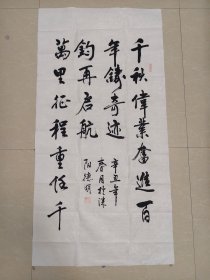 千秋偉業奮進百
年鑄奇迹
鈞再启航
萬里征程重任千
辛丑年
春月於深